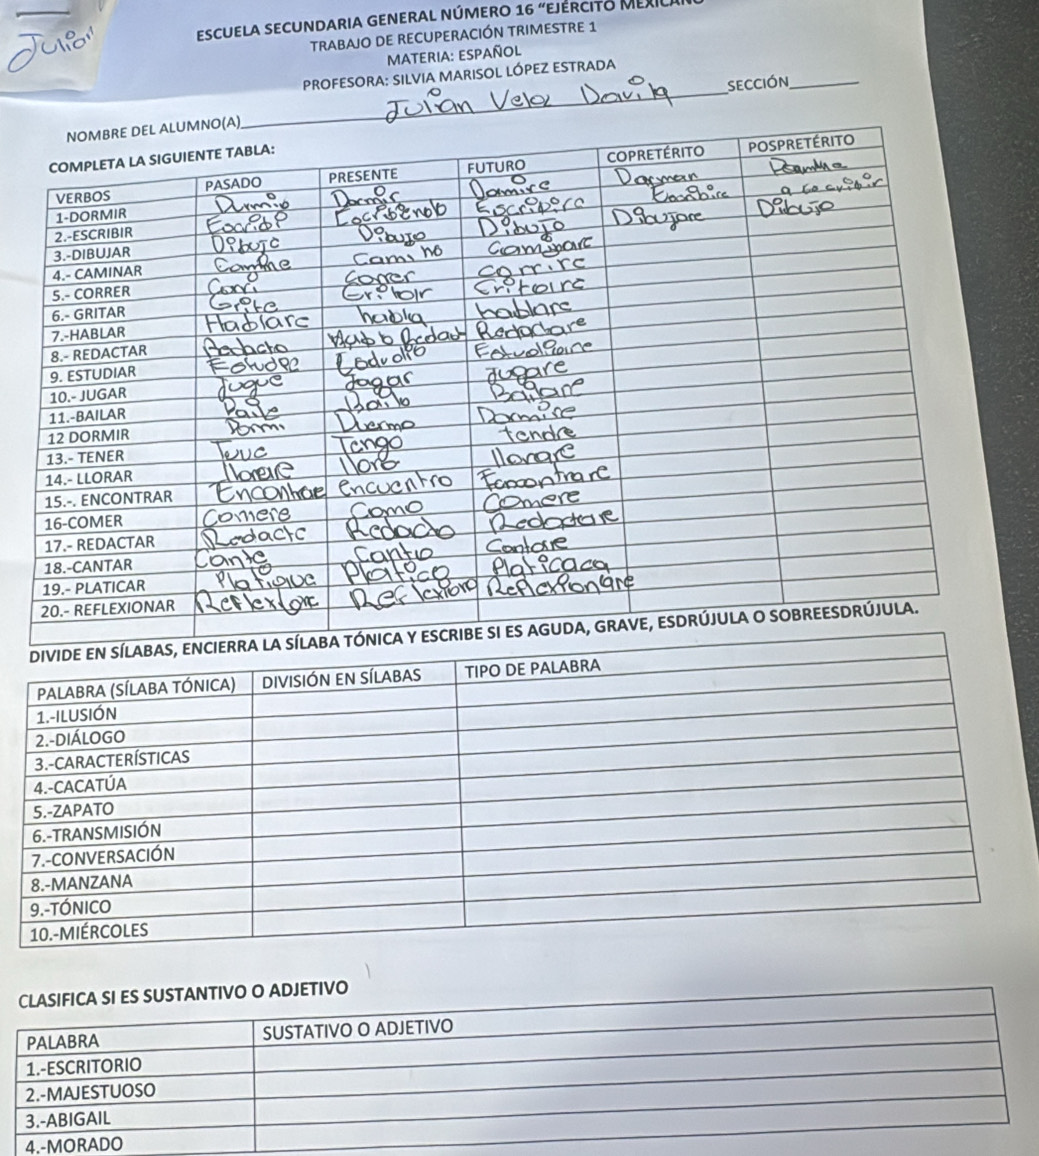 Julian
ESCUELA SECUNDARIA GENERAL NÚMERO 16 "EJÉRCITO MEXICANO
TRABAJO DE RECUPERACIÓN TRIMESTRE 1
MATERIA: ESPAÑOL
PROFESORA: SILVIA MARISOL LÓPEZ ESTRADA
NOMBRE DEL ALUMNO(A) Julian Velez Davila SECCIÓN
COMPLETA LA SIGUIENTE TABLA:
VERBOS PASADO PRESENTE FUTURO COPRETÉRITO POSPRETÉRITO
1-DORMIR Durmio Dormir Domire
2.-ESCRIBIR Escribi Escribendo Escribire
3.-DIBUJAR Dibujo Dibujo Dibujo Dibujare Dibujo
4.- CAMINAR Camine Camino Caminare
5.- CORRER Corri Correr Corrire
6.- GRITAR Grite Gritoir Gritoire
7.-HABLAR Hablare habla hablare
8.- REDACTAR Redacto Redactare
9. ESTUDIAR Estudie Estudiare
10.- JUGAR jugue Jugar jugare
11.-BAILAR Baile Bailo Bailare
12 DORMIR Dormi Duermo Dormire
13.- TENER Tuve Tengo tendre
14.- LLORAR llorere lloro llorare
15.-. ENCONTRAR Encontrae encuentro
16-COMER Comere Como Comere
17.- REDACTAR Redacte Redacto Redactare
18.-CANTAR Cante Canto Cantare
19.- PLATICAR Platique Platico Platicaca
20.- REFLEXIONAR Reflexione Reflexiono Reflexionare
DIVIDE EN SÍLABAS, ENCIERRA LA SÍLABA TÓNICA Y ESCRIBE SI ES AGUDA, GRAVE, ESDRÚJULA O SOBREESDRÚJULA.
PALABRA (SÍLABA TÓNICA) DIVISIÓN EN SÍLABAS TIPO DE PALABRA
1.-ILUSIÓN
2.-DIÁLOGO
3.-CARACTERÍSTICAS
4.-CACATÚA
5.-ZAPATO
6.-TRANSMISIÓN
7.-CONVERSACIÓN
8.-MANZANA
9.-TÓNICO
10.-MIÉRCOLES
CLASIFICA SI ES SUSTANTIVO O ADJETIVO
PALABRA SUSTATIVO O ADJETIVO
1.-ESCRITORIO
2.-MAJESTUOSO
3.-ABIGAIL
4.-MORADO